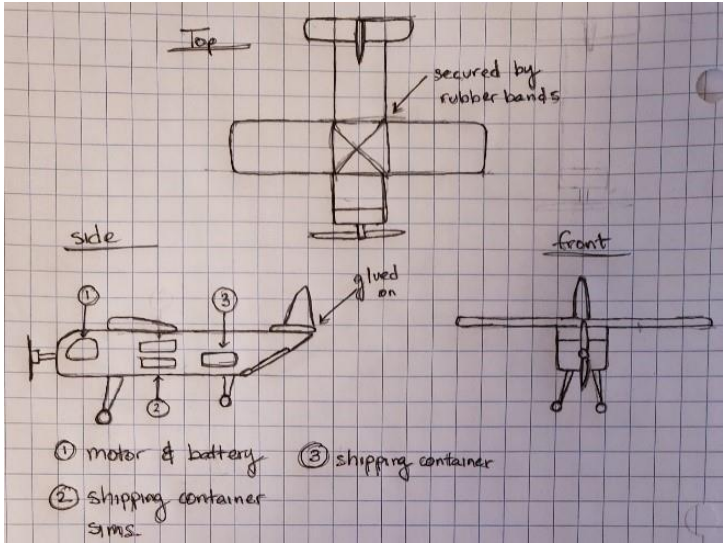 Top
secured by
rubber bands
side
front
glued
on
1
3
2
① motor & battery
③ shipping container
② shipping container
sims